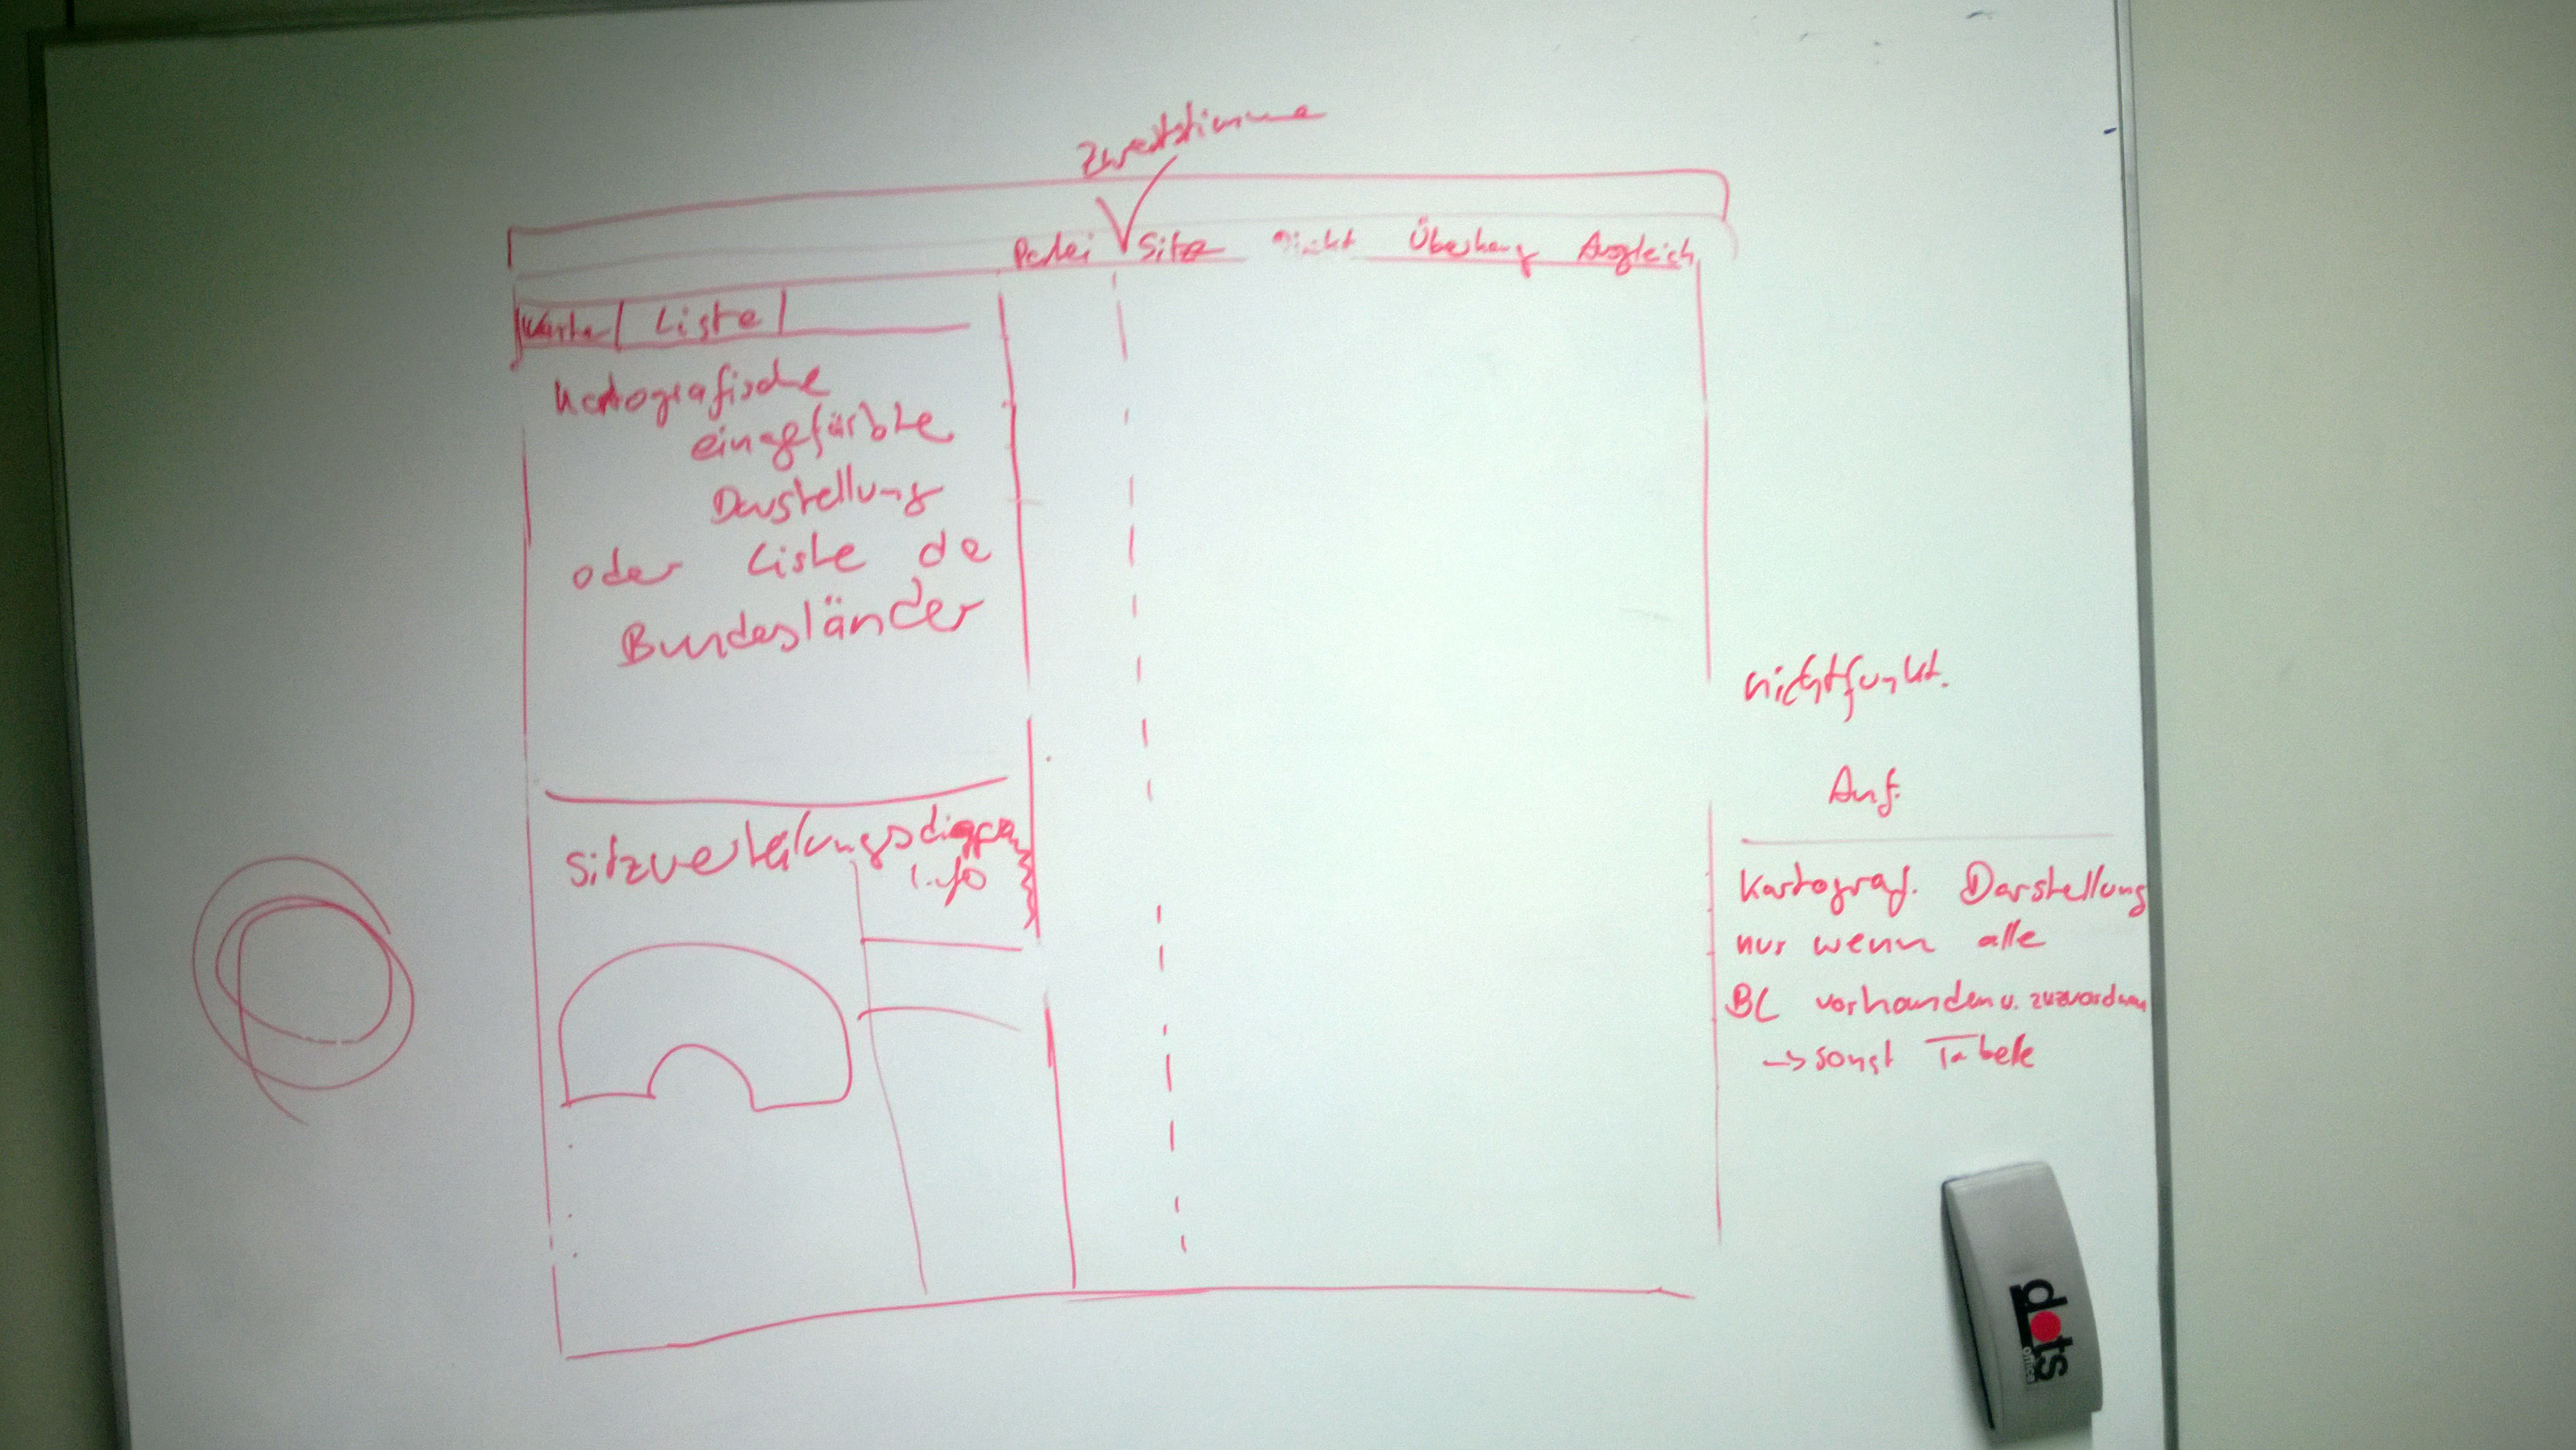 Zweitstimme
Partei Sitze Direkt Überhang Ausgleich
Karte Liste
Kartografische
eingefärbte
Darstellung
oder Liste de
Bundesländer
Sitzverteilungsdiagram
Info
nichtfunkt.
Anf.
Kartograf. Darstellung
nur wenn alle
BL vorhanden u. zuzuordnen
→ sonst Tabelle
dots
office